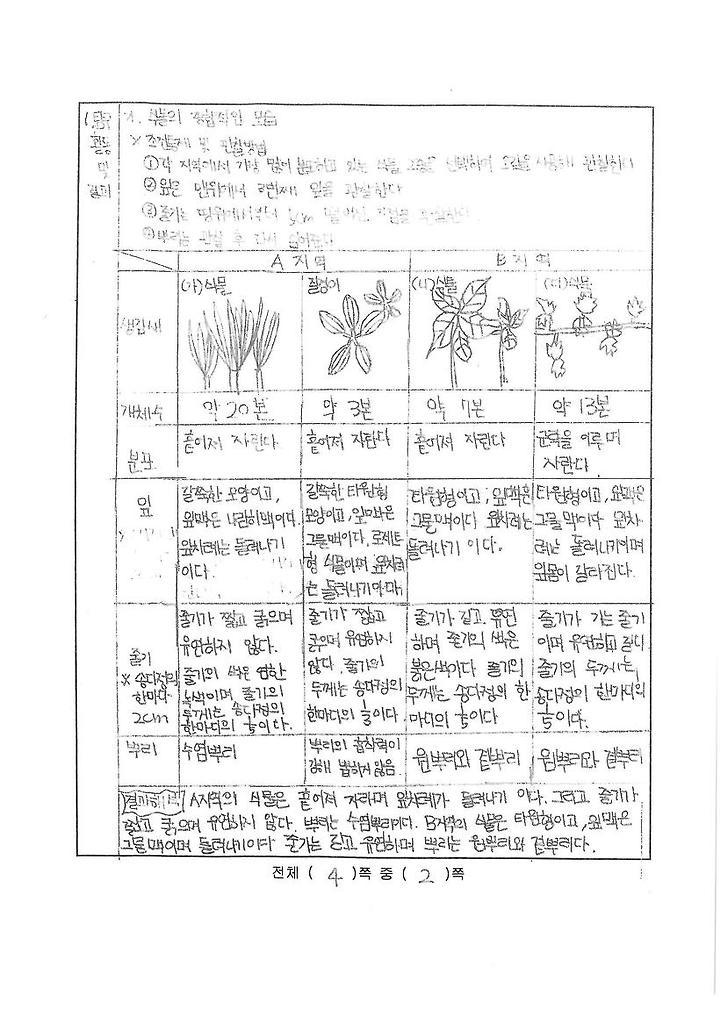 1. 식물의 종합적인 모습
탐구
활동
및
결과
※ 조건통제 및 관찰방법
①각 지역에서 가장 많이 분포하고 있는 식물 2종을 선택하여 오감을 사용해 관찰한다
②잎은 맨위에서 3번째 잎을 관찰한다
③줄기는 땅위에서부터 5cm 떨어진 지점을 관찰한다
④뿌리는 관찰 후 다시 심어준다
A 지역 B 지역
(가)식물 질경이 (나)식물 (다)식물
생김새
개체수 약 20본 약 3본 약 7본 약 13본
분포 흩어져 자란다 흩어져 자란다 흩어져 자란다 군락을 이루며
자란다.
잎
길쭉한 모양이고,
잎맥은 나란히맥이다.
잎차례는 돌려나기
이다.
길쭉한 타원형
모양이고, 잎맥은
그물맥이다. 로제트
형 식물이며 잎차례
는 돌려나기이다.
타원형이고, 잎맥은
그물맥이다 잎차례는
돌려나기 이다.
타원형이고, 잎맥은
그물맥이다 잎차
례는 돌려나기이며
잎몸이 갈라진다.
줄기
※ 송다정의
한마디
2cm
줄기가 짧고 굵으며
유연하지 않다.
줄기의 색은 연한
녹색이며 줄기의
두께는 송다정의
한마디의 ½이다.
줄기가 짧고
굵으며 유연하지
않다. 줄기의
두께는 송다정의
한마디의 ½이다
줄기가 길고 유연
하며 줄기의 색은
붉은색이다 줄기의
두께는 송다정의 한
마디의 ½이다
줄기가 가는 줄기
이며 유연하고 길다
줄기의 두께는
송다정이 한마디의
½이다.
뿌리 수염뿌리
뿌리의 흡착력이
강해 뽑히지 않음.
원뿌리와 곁뿌리 원뿌리와 곁뿌리
결과해석 A지역의 식물은 흩어져 자라며 잎차례가 돌려나기 이다. 그리고 줄기가
짧고 굵으며 유연하지 않다. 뿌리는 수염뿌리이다. B지역의 식물은 타원형이고, 잎맥은
그물맥이며 돌려나기이다 줄기는 길고 유연하며 뿌리는 원뿌리와 곁뿌리다.
전체 ( 4 )쪽 중 ( 2 )쪽